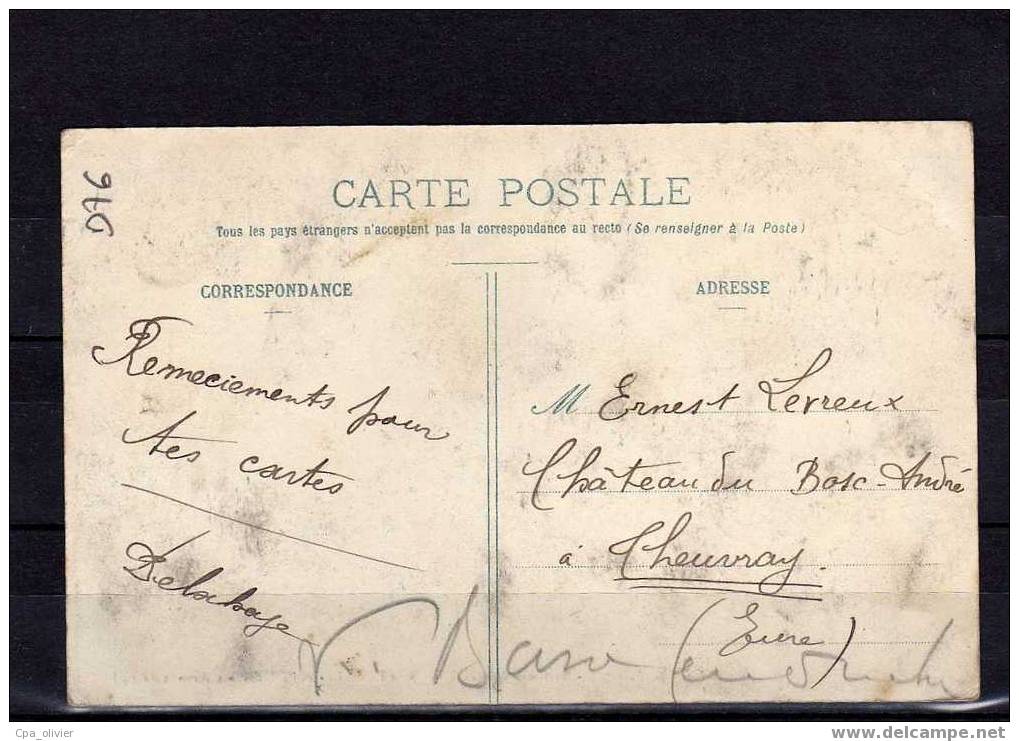 D76
CARTE POSTALE
Tous les pays étrangers n'acceptent pas la correspondance au recto (Se renseigner à la Poste)
CORRESPONDANCE
Remeciements pour
tes cartes
Delahaye
ADRESSE
M Ernest Levreux
Château du Bosc-André
à Theuvray.
(Eure)
Cpa_olivier
www.delcampe.net